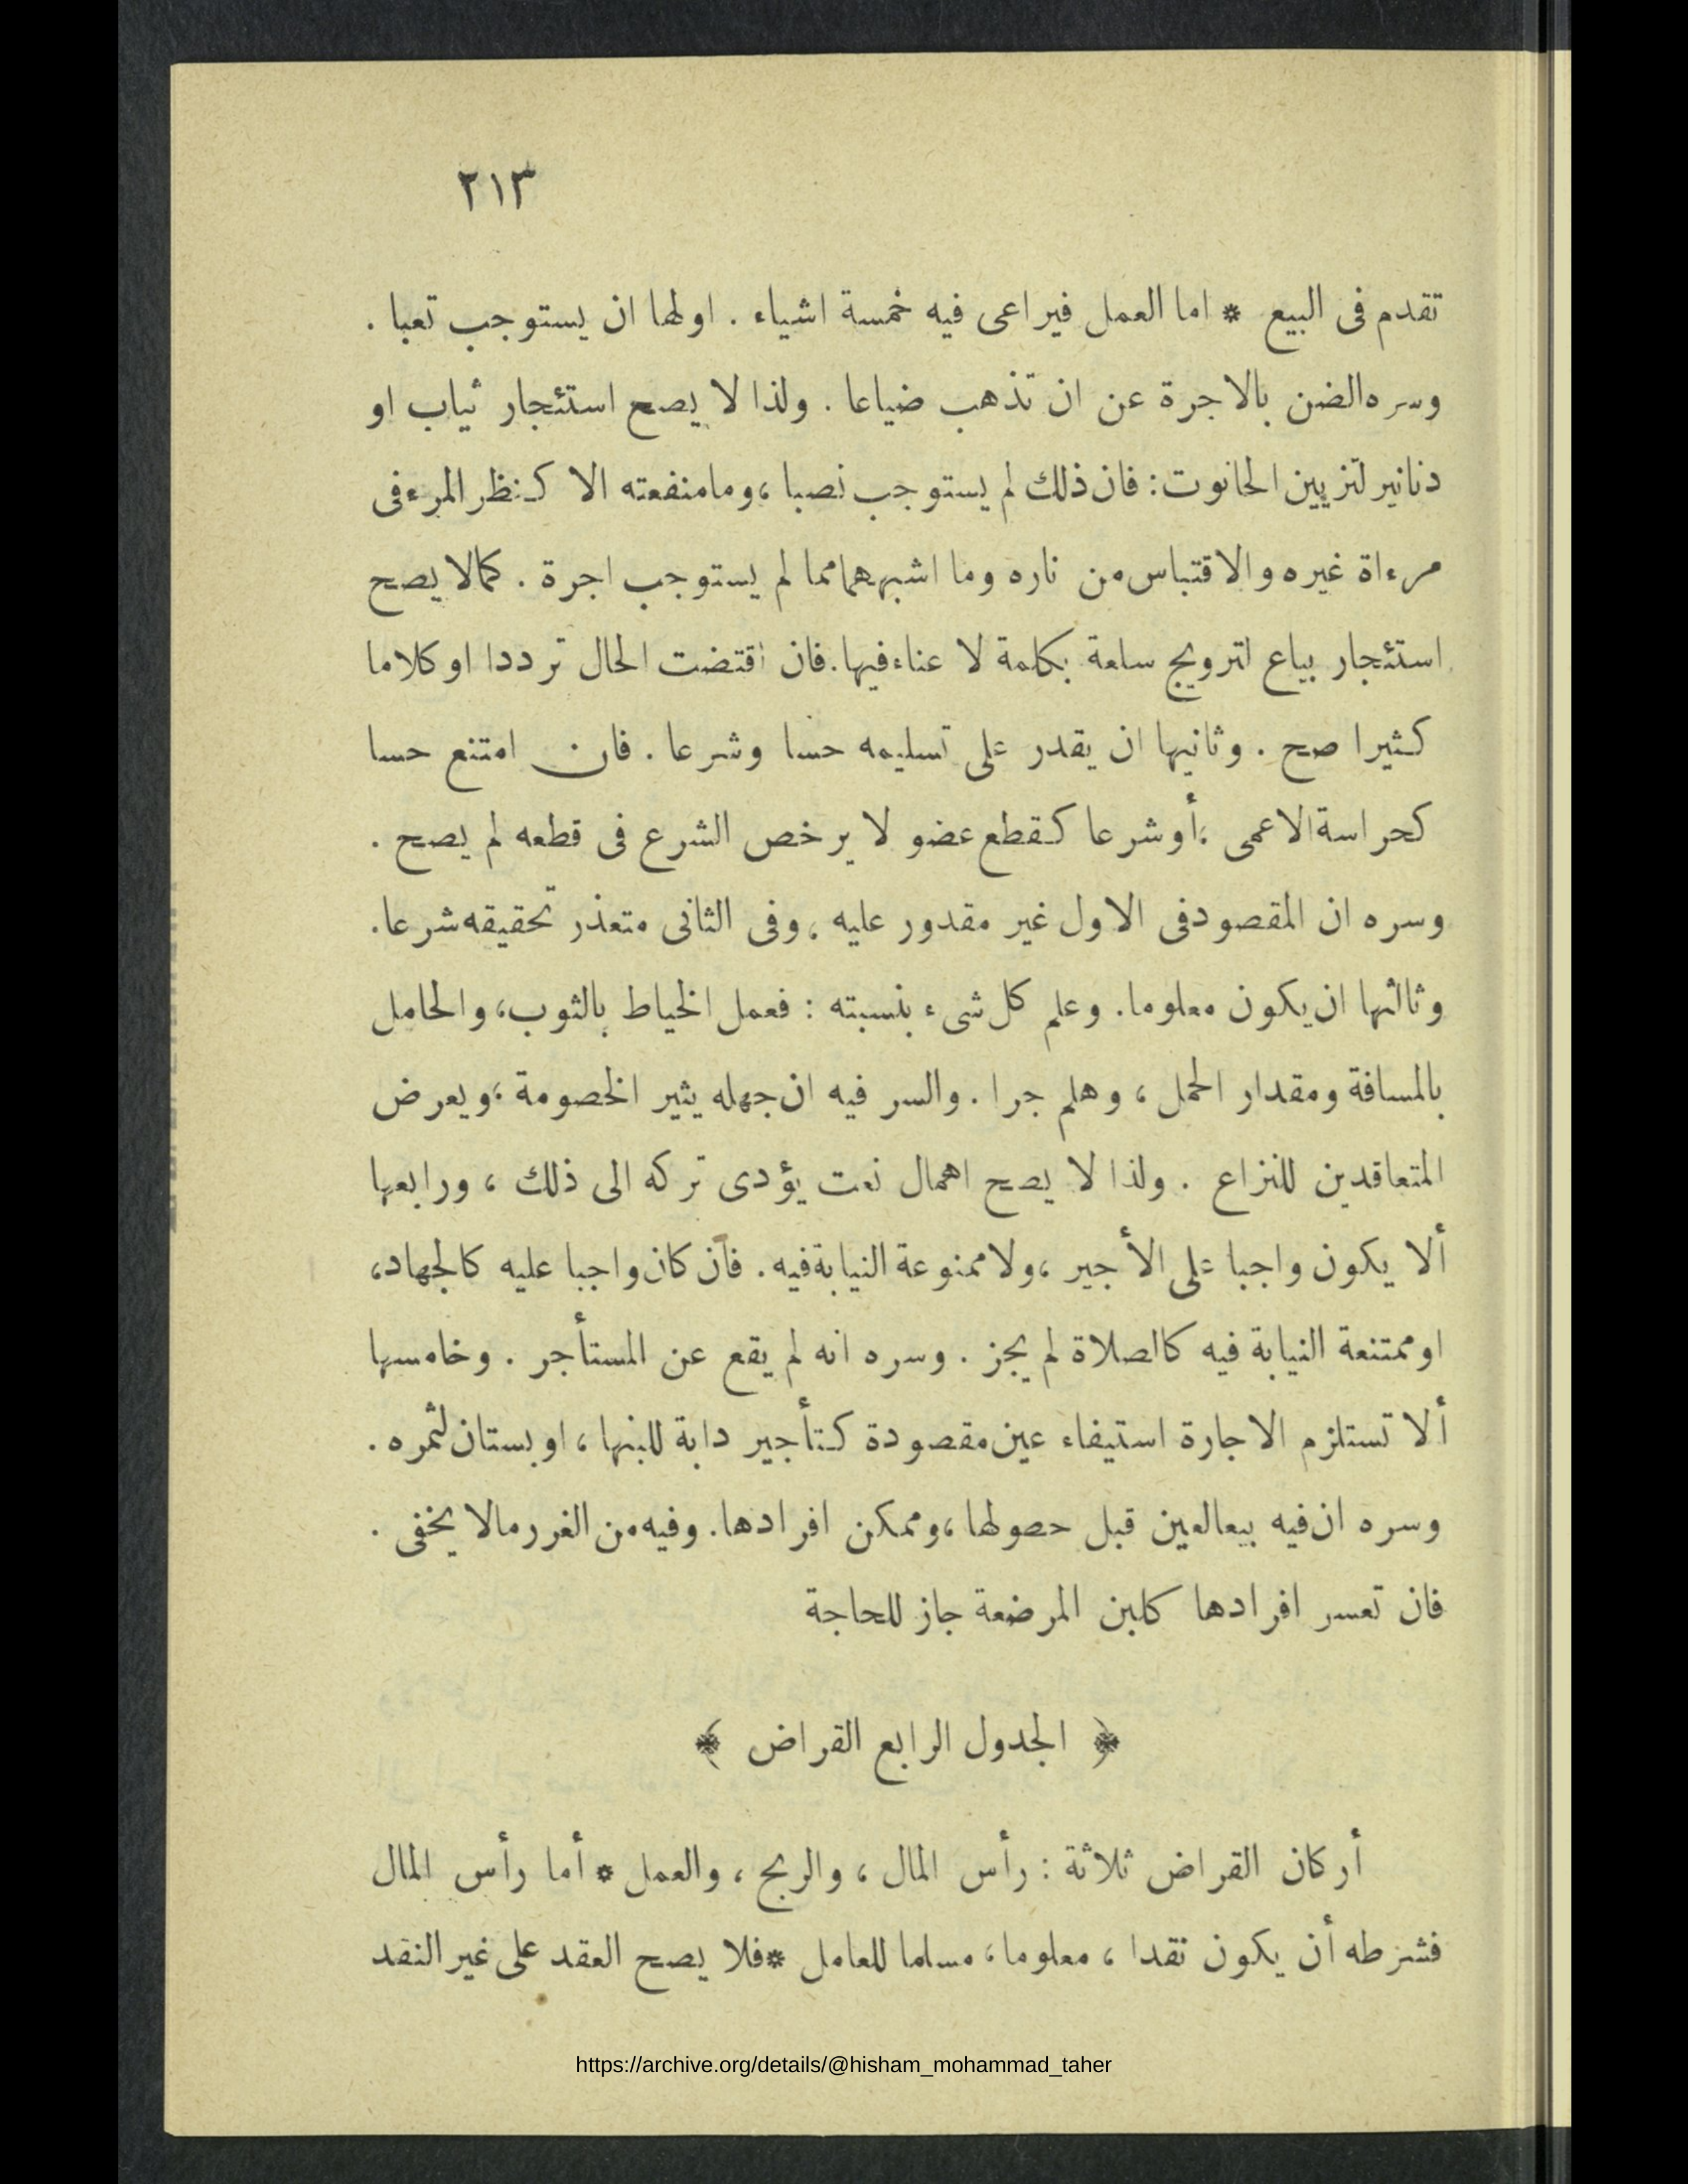 ٢١٣
تقدم فى البيع * اما العمل فيراعى فيه خمسة اشياء . اولها ان يستوجب تعبا .
وسره الضن بالاجرة عن ان تذهب ضياعا . ولذا لا يصح استئجار ثياب او
دنانير لتزيين الحانوت : فان ذلك لم يستوجب نصبا ، وما منفعته الا كنظر المرء فى
مرءاة غيره والاقتباس من ناره وما اشبههما مما لم يستوجب اجرة . كما لا يصح
استئجار بياع لترويج سلعة بكلمة لا عناء فيها . فان اقتضت الحال ترددا او كلاما
كثيرا صح . وثانيها ان يقدر على تسليمه حسا وشرعا . فان امتنع حسا
كحراسة الاعمى ، أو شرعا كقطع عضو لا يرخص الشرع فى قطعه لم يصح .
وسره ان المقصود فى الاول غير مقدور عليه ، وفى الثانى متعذر تحقيقه شرعا .
وثالثها ان يكون معلوما . وعلم كل شىء بنسبته : فعمل الخياط بالثوب ، والحامل
بالمسافة ومقدار الحمل ، وهلم جرا . والسر فيه ان جهله يثير الخصومة ، ويعرض
المتعاقدين للنزاع . ولذا لا يصح اهمال نعت يؤدى تركه الى ذلك ، ورابعها
ألا يكون واجبا على الأجير ، ولا ممنوعة النيابة فيه . فان كان واجبا عليه كالجهاد ،
او ممتنعة النيابة فيه كالصلاة لم يجز . وسره انه لم يقع عن المستأجر . وخامسها
ألا تستلزم الاجارة استيفاء عين مقصودة كتأجير دابة للبنها ، او بستان لثمره .
وسره ان فيه بيع العين قبل حصولها ، وممكن افرادها . وفيه من الغرر مالا يخفى .
فان تعسر افرادها كلبن المرضعة جاز للحاجة
﴿ الجدول الرابع القراض ﴾
أركان القراض ثلاثة : رأس المال ، والربح ، والعمل * أما رأس المال
فشرطه أن يكون نقدا ، معلوما ، مسلما للعامل * فلا يصح العقد على غير النقد
https://archive.org/details/@hisham_mohammad_taher